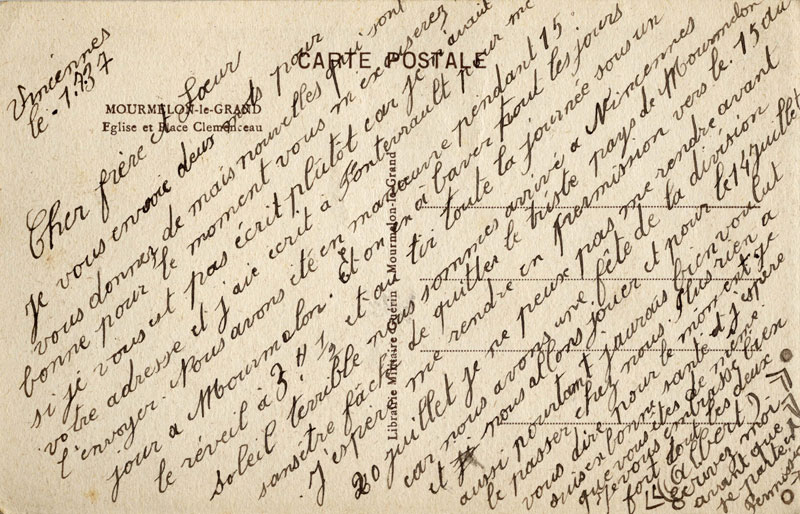 CARTE POSTALE
MOURMELON-le-GRAND
Eglise et Place Clemenceau
Librairie Militaire Guérin - Mourmelon-le-Grand
Vincennes
le - 1.7.37
Cher frère et Sœur
Je vous envoie deux mots pour
vous donnez de mais nouvelles qui sont
bonne pour le moment vous m'excuserez
si je vous est pas écrit plutôt car je avait
votre adresse et j'aie ecrit à Fontevrault pour me
l'envoyer. Nous avons été en manœuvre pendant 15
jour a Mourmelon. Et on en à baver tout les jours
le réveil à 3 H ½ et au tir toute la journée sous un
soleil terrible nous sommes arrivé a Vincennes
sansêtre fâché de quitter le triste pays de Mourmelon
J'espère me rendre en permission vers le. 15 au
20 juillet je ne peux pas me rendre avant
car nous avons une fête de la division
et nous allons jouer et pour le 14 juillet
aussi pourtant jaurais bien voulut
le passer chez nous. Plus rien a
vous dire pour le moment je
suis en bonne santé et j'espère
que vous êtes de même
Je vous embrasse bien
fort tout les deux
(Albert)
Ecrivez moi
avant que
je parte en
Permission